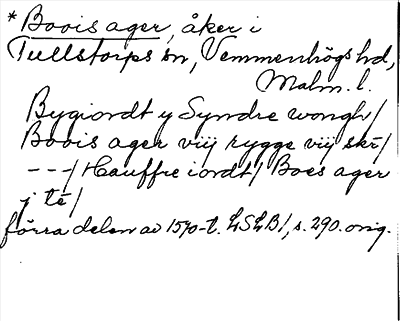 * Boois ager, åker i
Tullstorps sn, Vemmenhögs hd,
Malm. l.
Bygiordt y Syndre wongh/
Boois ager viij rygge viij skr/
---/ Hauffre iordt/ Boes ager
j te/
förra delen av 1570-t. LSLB1, s. 290. orig.